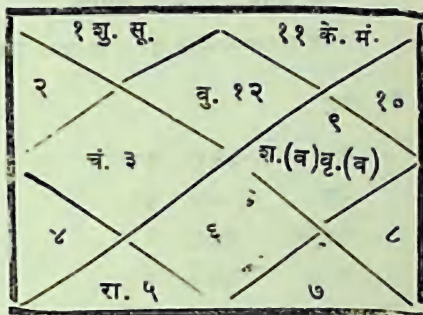 १ शु. सू. ११ के. मं.
२ वु. १२ १०
९
चं. ३ श.(व)वृ.(व)
४ ६ ८
रा. ५ ७